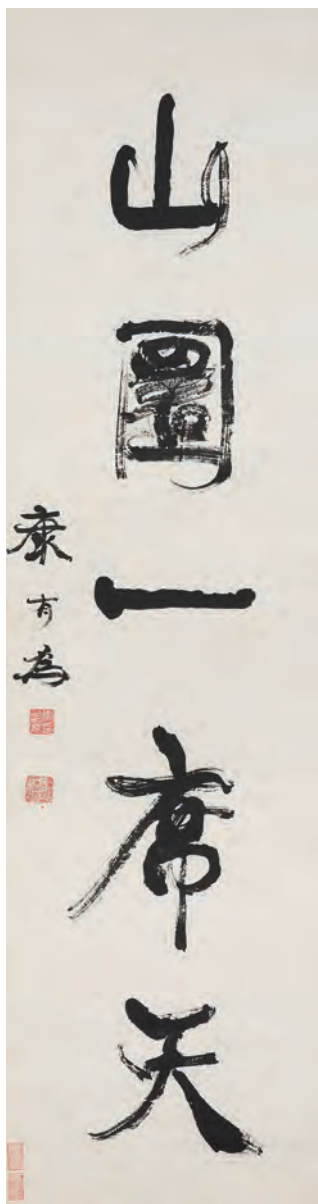 山圜一席天
康有為